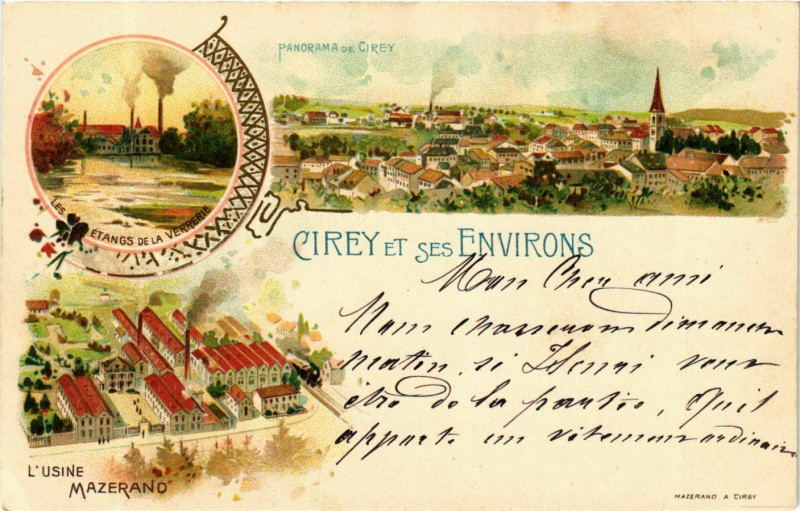 PANORAMA DE CIREY
LES ETANGS DE LA VERRERIE
CIREY ET SES ENVIRONS
Mon Cher ami
Nous chasserons dimanche
matin, si Henri veut
être de la partie, qu'il
apporte un vêtement ordinaire
L'USINE
MAZERAND
MAZERAND A CIREY